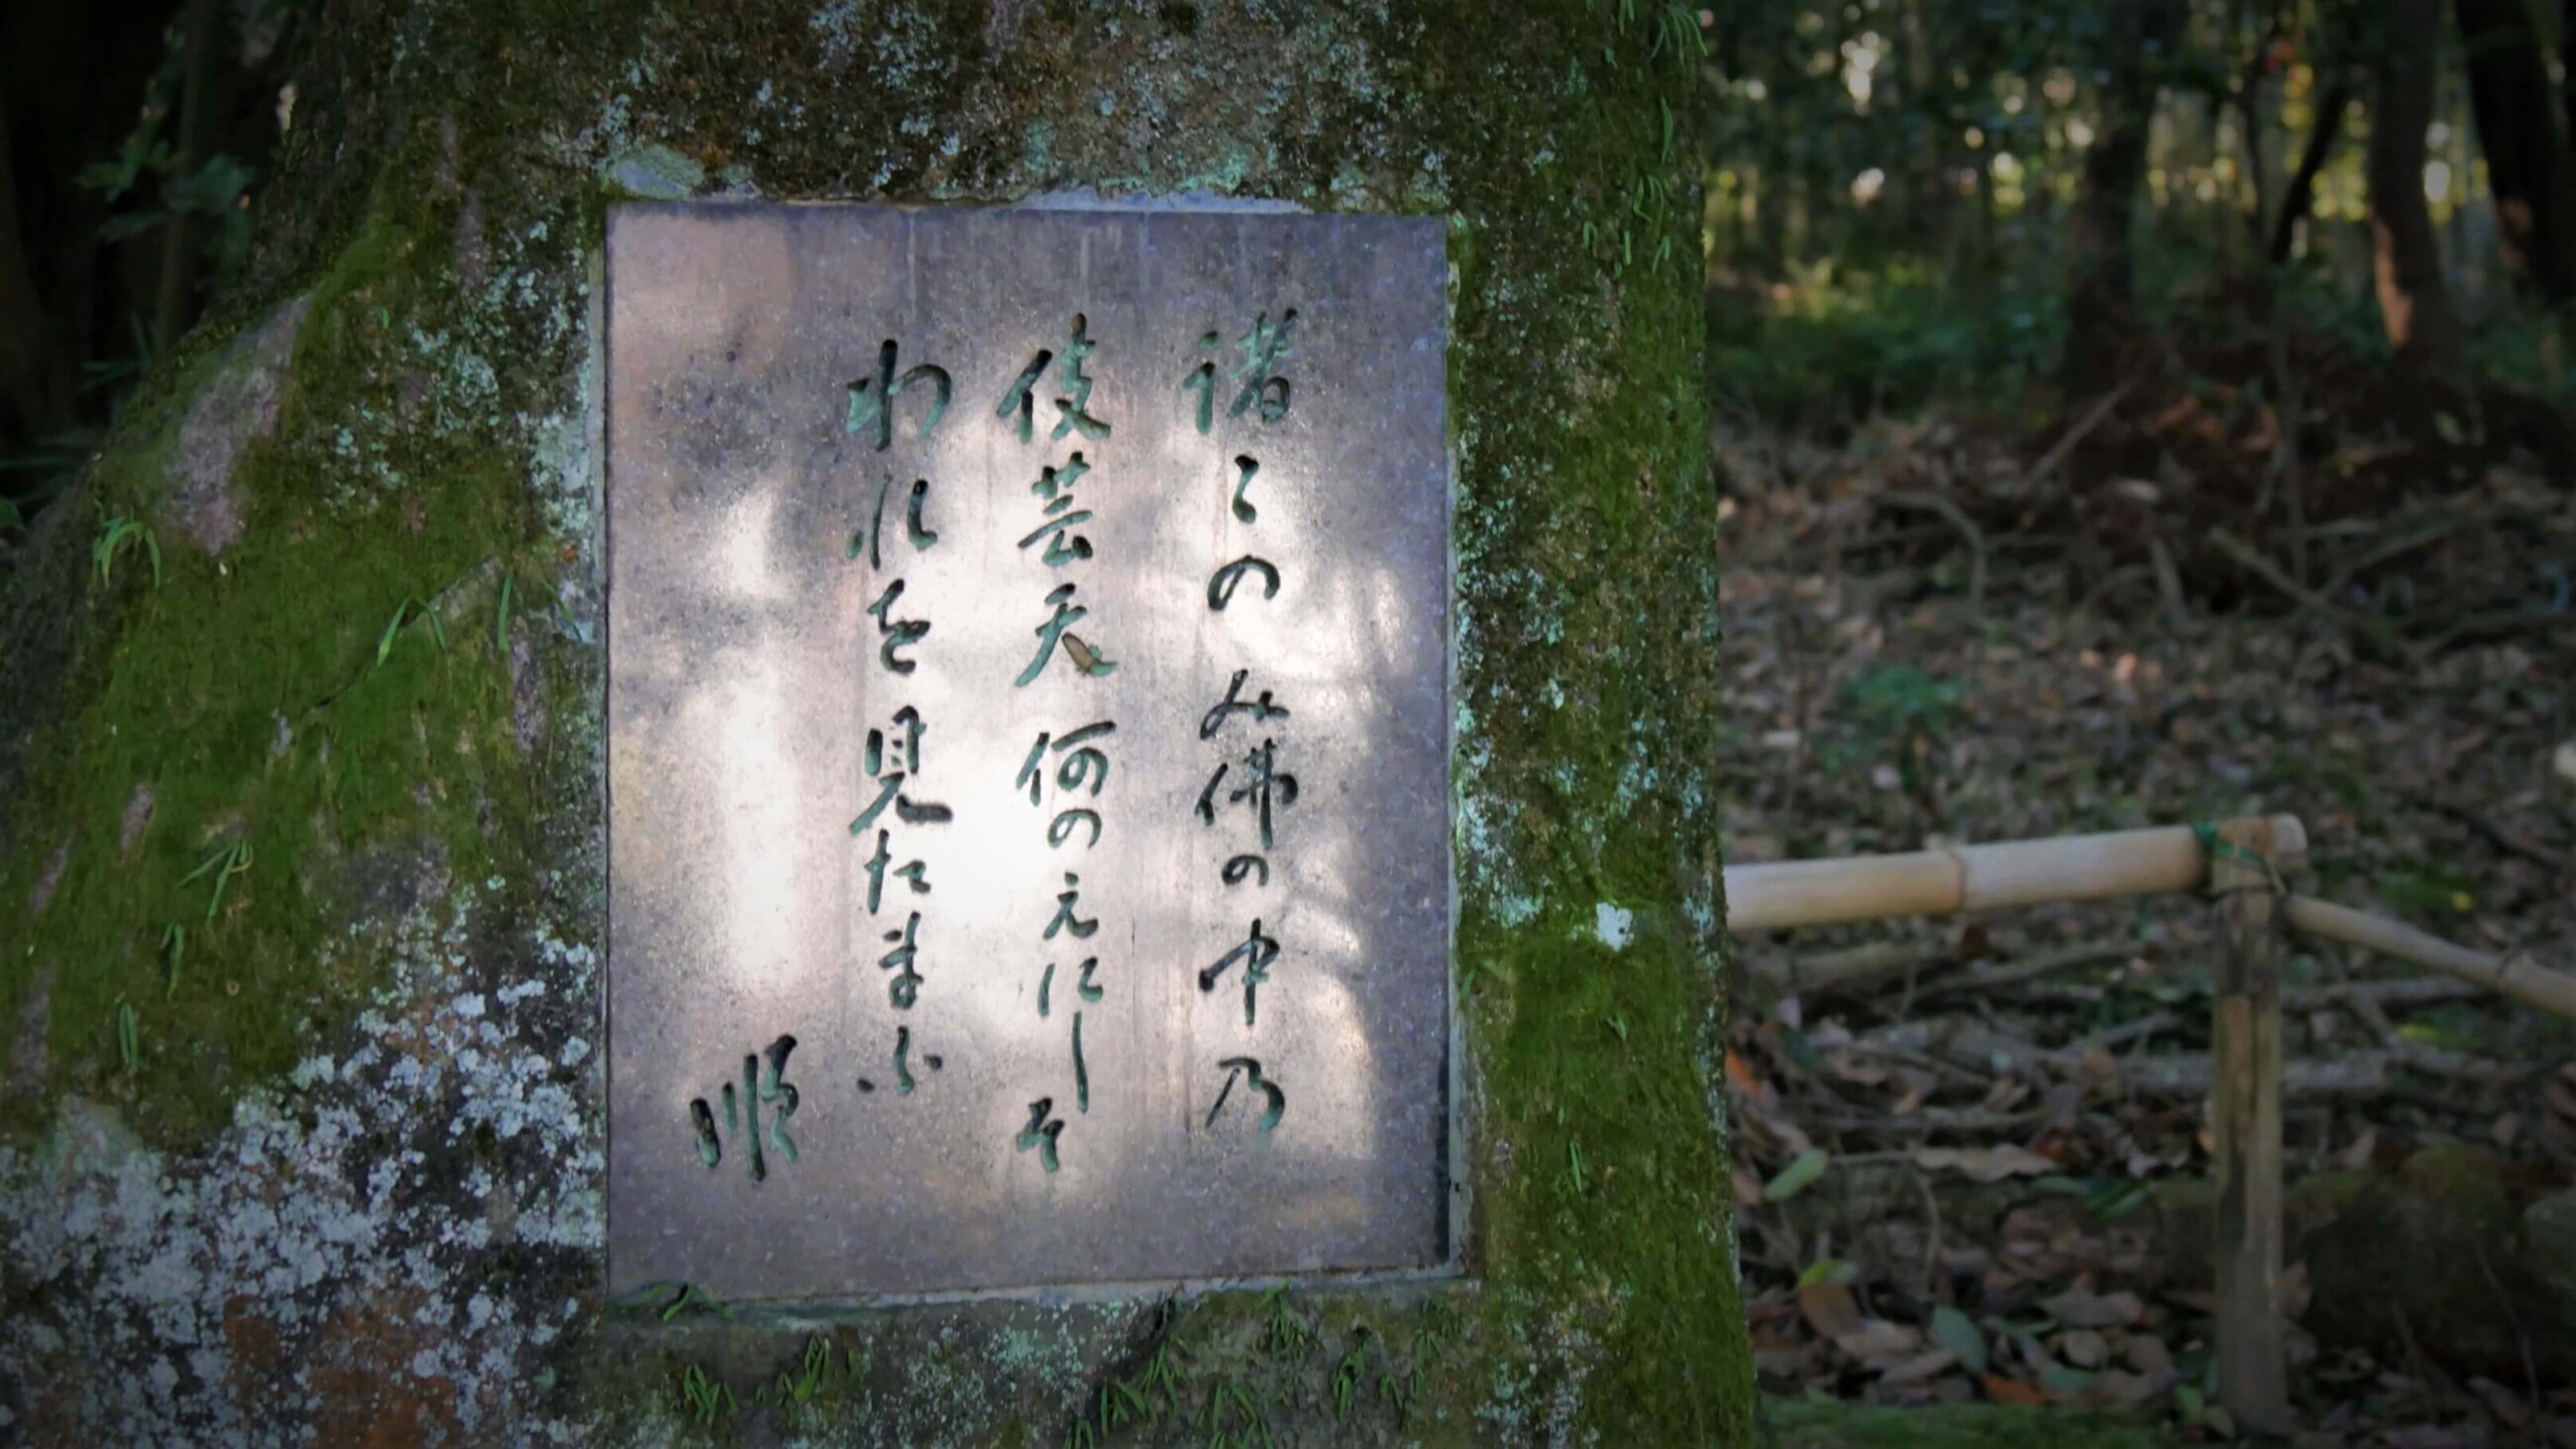 諸々のみ佛の中乃
伎芸天何のえにしそ
われを見たまふ
順